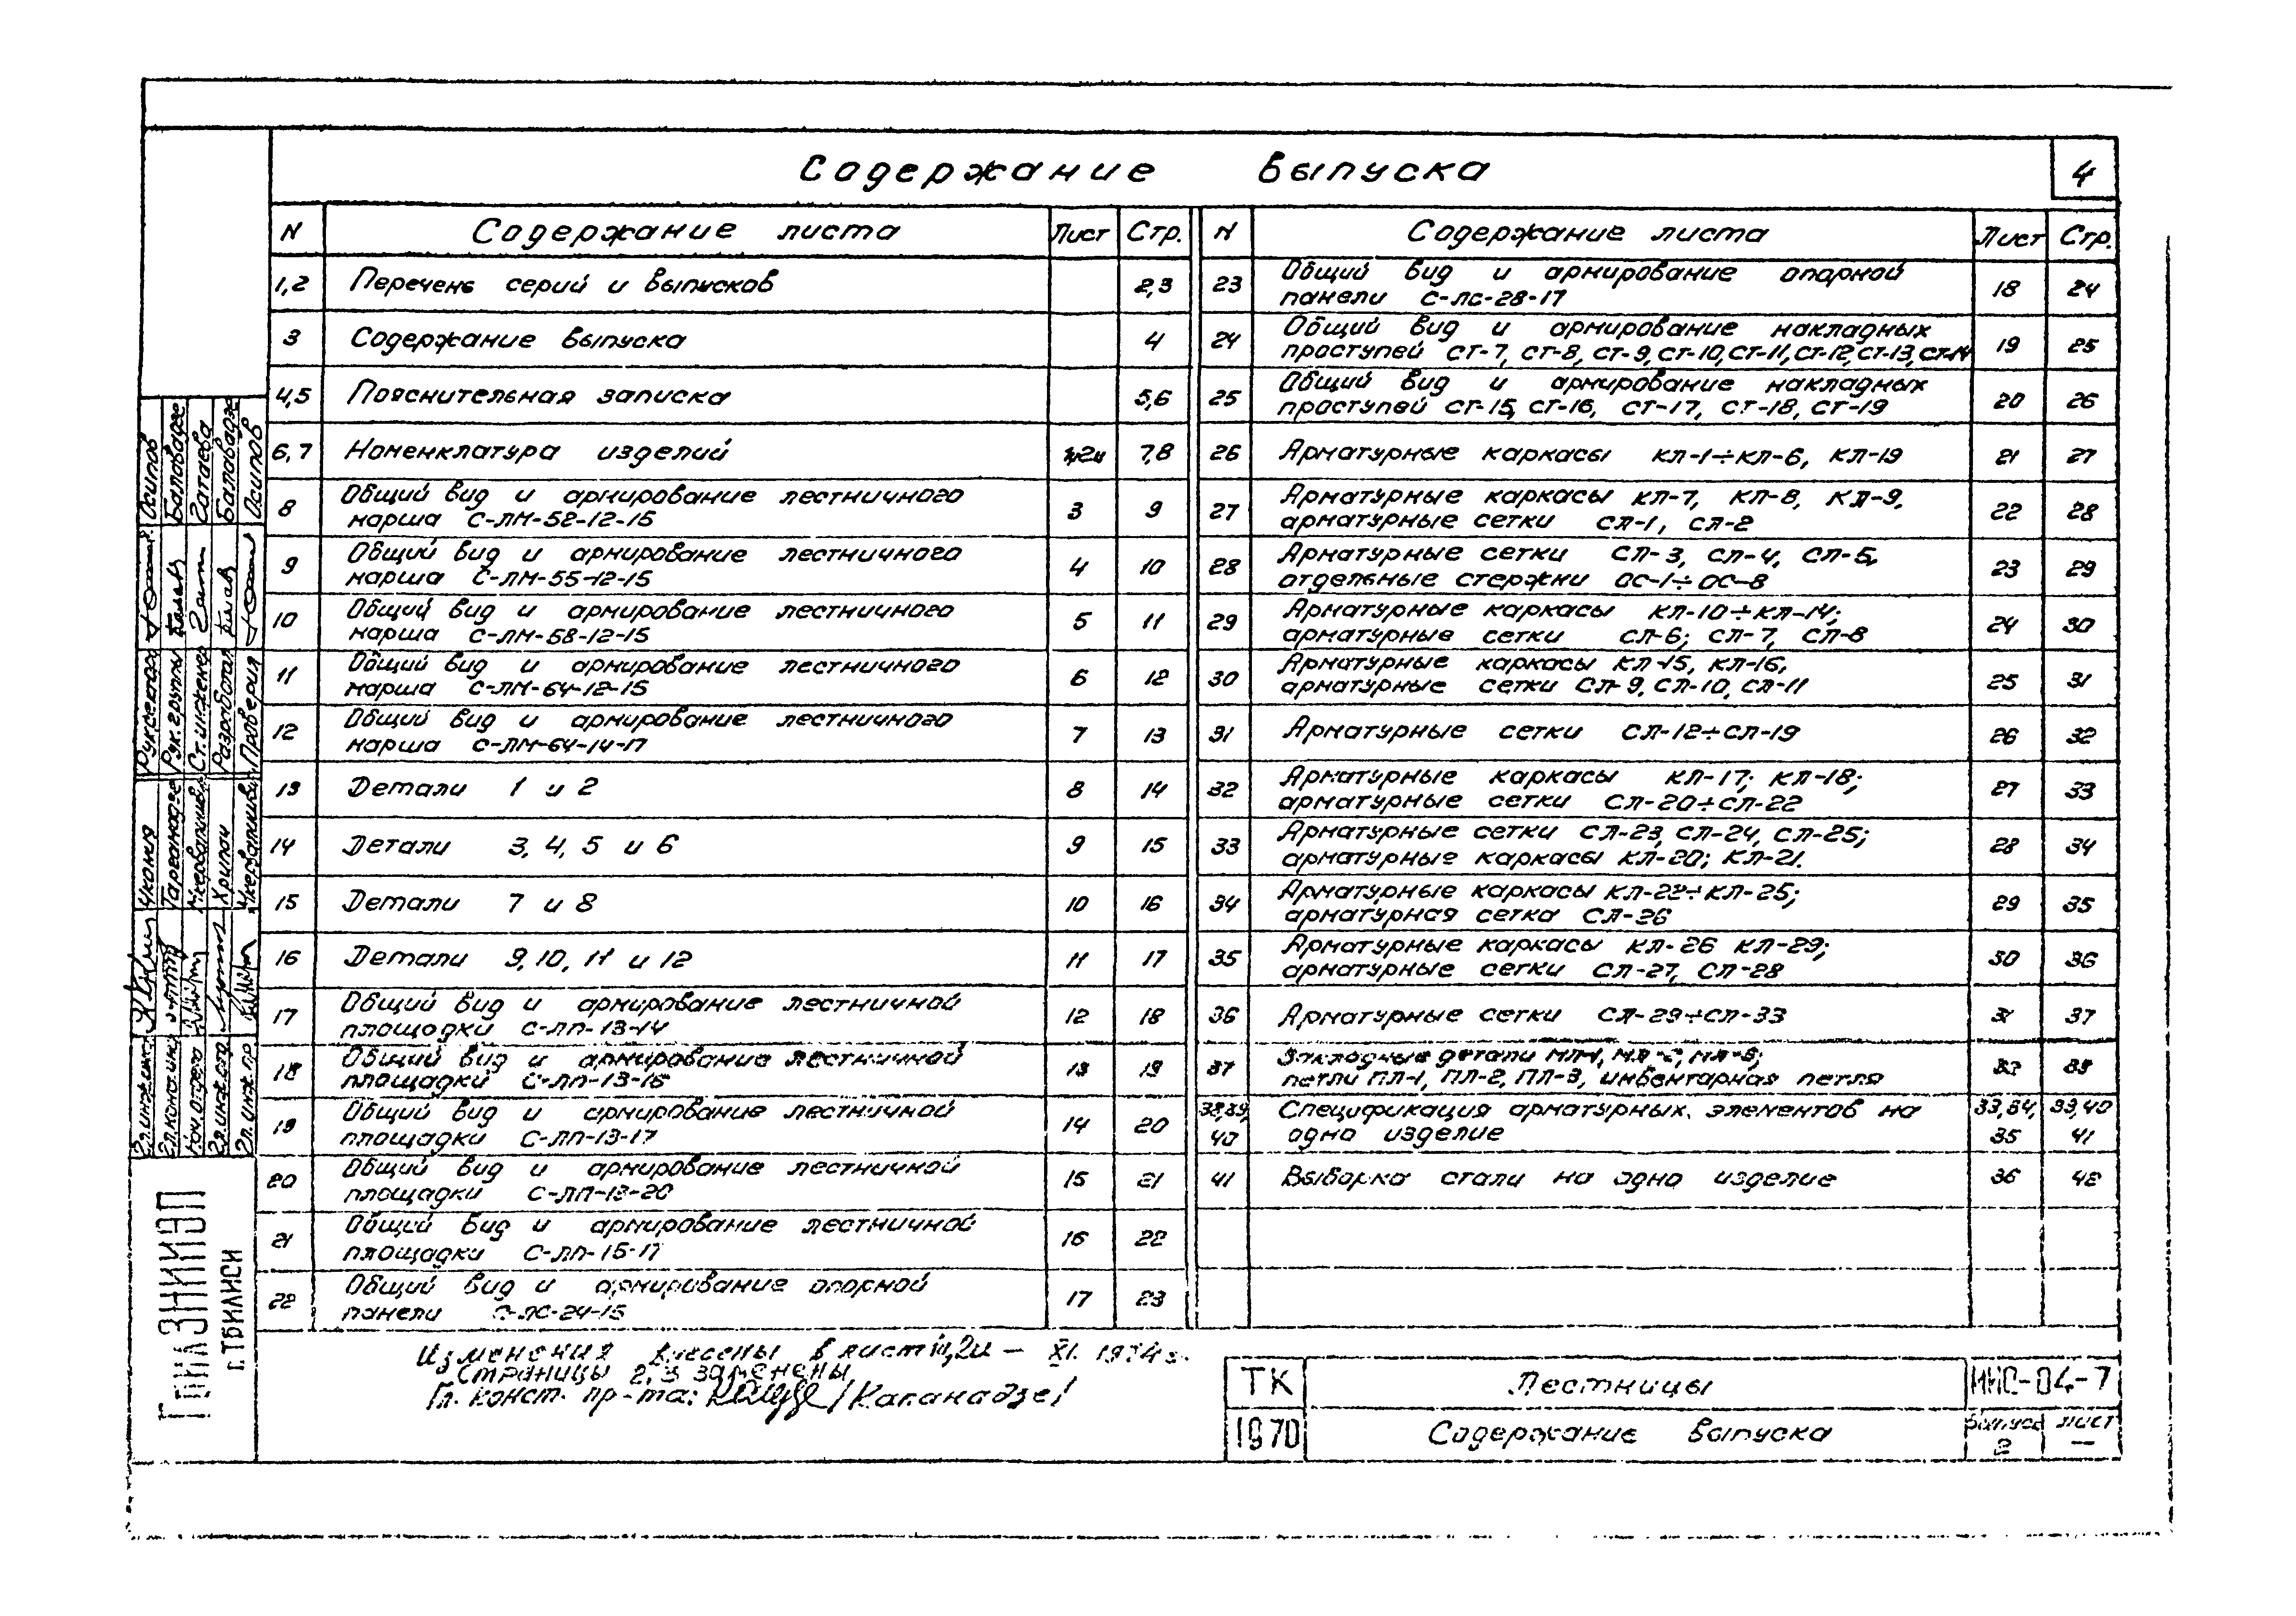 Содержание выпуска
4
N Содержание листа Лист Стр.
1,2 Перечень серий и выпусков 2,3
3 Содержание выпуска 4
4,5 Пояснительная записка 5,6
6,7 Номенклатура изделий 7,8
8 Общий вид и армирование лестничного
марша С-ЛМ-52-12-15 3 9
9 Общий вид и армирование лестничного
марша С-ЛМ-55-12-15 4 10
10 Общий вид и армирование лестничного
марша С-ЛМ-58-12-15 5 11
11 Общий вид и армирование лестничного
марша С-ЛМ-64-12-15 6 12
12 Общий вид и армирование лестничного
марша С-ЛМ-64-14-17 7 13
13 Детали 1 и 2 8 14
14 Детали 3, 4, 5 и 6 9 15
15 Детали 7 и 8 10 16
16 Детали 9, 10, 11 и 12 11 17
17 Общий вид и армирование лестничной
площадки С-ЛП-13-14 12 18
18 Общий вид и армирование лестничной
площадки С-ЛП-13-15 13 19
19 Общий вид и армирование лестничной
площадки С-ЛП-13-17 14 20
20 Общий вид и армирование лестничной
площадки С-ЛП-13-20 15 21
21 Общий вид и армирование лестничной
площадки С-ЛП-15-17 16 22
22 Общий вид и армирование опорной
панели С-ЛС-24-15 17 23
N Содержание листа Лист Стр.
23 Общий вид и армирование опорной
панели С-ЛС-28-17 18 24
24 Общий вид и армирование накладных
проступей СТ-7, СТ-8, СТ-9, СТ-10, СТ-11, СТ-12, СТ-13, СТ-14 19 25
25 Общий вид и армирование накладных
проступей СТ-15, СТ-16, СТ-17, СТ-18, СТ-19 20 26
26 Арматурные каркасы КЛ-1÷КЛ-6, КЛ-19 21 27
27 Арматурные каркасы КЛ-7, КЛ-8, КЛ-9,
арматурные сетки СЛ-1, СЛ-2 22 28
28 Арматурные сетки СЛ-3, СЛ-4, СЛ-5,
отдельные стержни ОС-1÷ОС-8 23 29
29 Арматурные каркасы КЛ-10÷КЛ-14;
арматурные сетки СЛ-6; СЛ-7, СЛ-8 24 30
30 Арматурные каркасы КЛ-15, КЛ-16,
арматурные сетки СЛ-9, СЛ-10, СЛ-11 25 31
31 Арматурные сетки СЛ-12÷СЛ-19 26 32
32 Арматурные каркасы КЛ-17; КЛ-18;
арматурные сетки СЛ-20÷СЛ-22 27 33
33 Арматурные сетки СЛ-23, СЛ-24, СЛ-25;
арматурные каркасы КЛ-20; КЛ-21. 28 34
34 Арматурные каркасы КЛ-22÷КЛ-25;
арматурная сетка СЛ-26 29 35
35 Арматурные каркасы КЛ-26 КЛ-29;
арматурные сетки СЛ-27, СЛ-28 30 36
36 Арматурные сетки СЛ-29÷СЛ-33 31 37
37 Закладные детали
петли ПЛ-1, ПЛ-2, ПЛ-3, инвентарная петля 32 38
38,39, Спецификация арматурных элементов на 33,34, 39,40
40 одно изделие 35 41
41 Выборка стали на одно изделие 36 42
Изменения внесены в лист 1и,2и – XI. 1974г.
Страницы 2,3 заменены
Гл. конст. пр-та: /Каканадзе/
ТК Лестницы ИИС-04-7
1970 Содержание выпуска выпуск лист
2 —
Рук. сектора Осипов
Рук. группы Балавадзе
Ст. инженер Сатаева
Разработал Балавадзе
Проверил Осипов
ТбилЗНИИЭП
г. ТБИЛИСИ